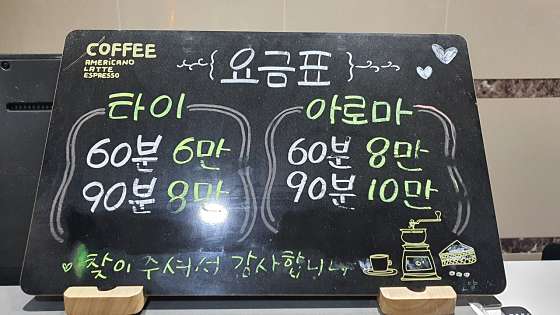 COFFEE
AMERICANO
LATTE
ESPRESSO
요금표
타이
60분 6만
90분 8만
아로마
60분 8만
90분 10만
찾아 주셔서 감사합니다